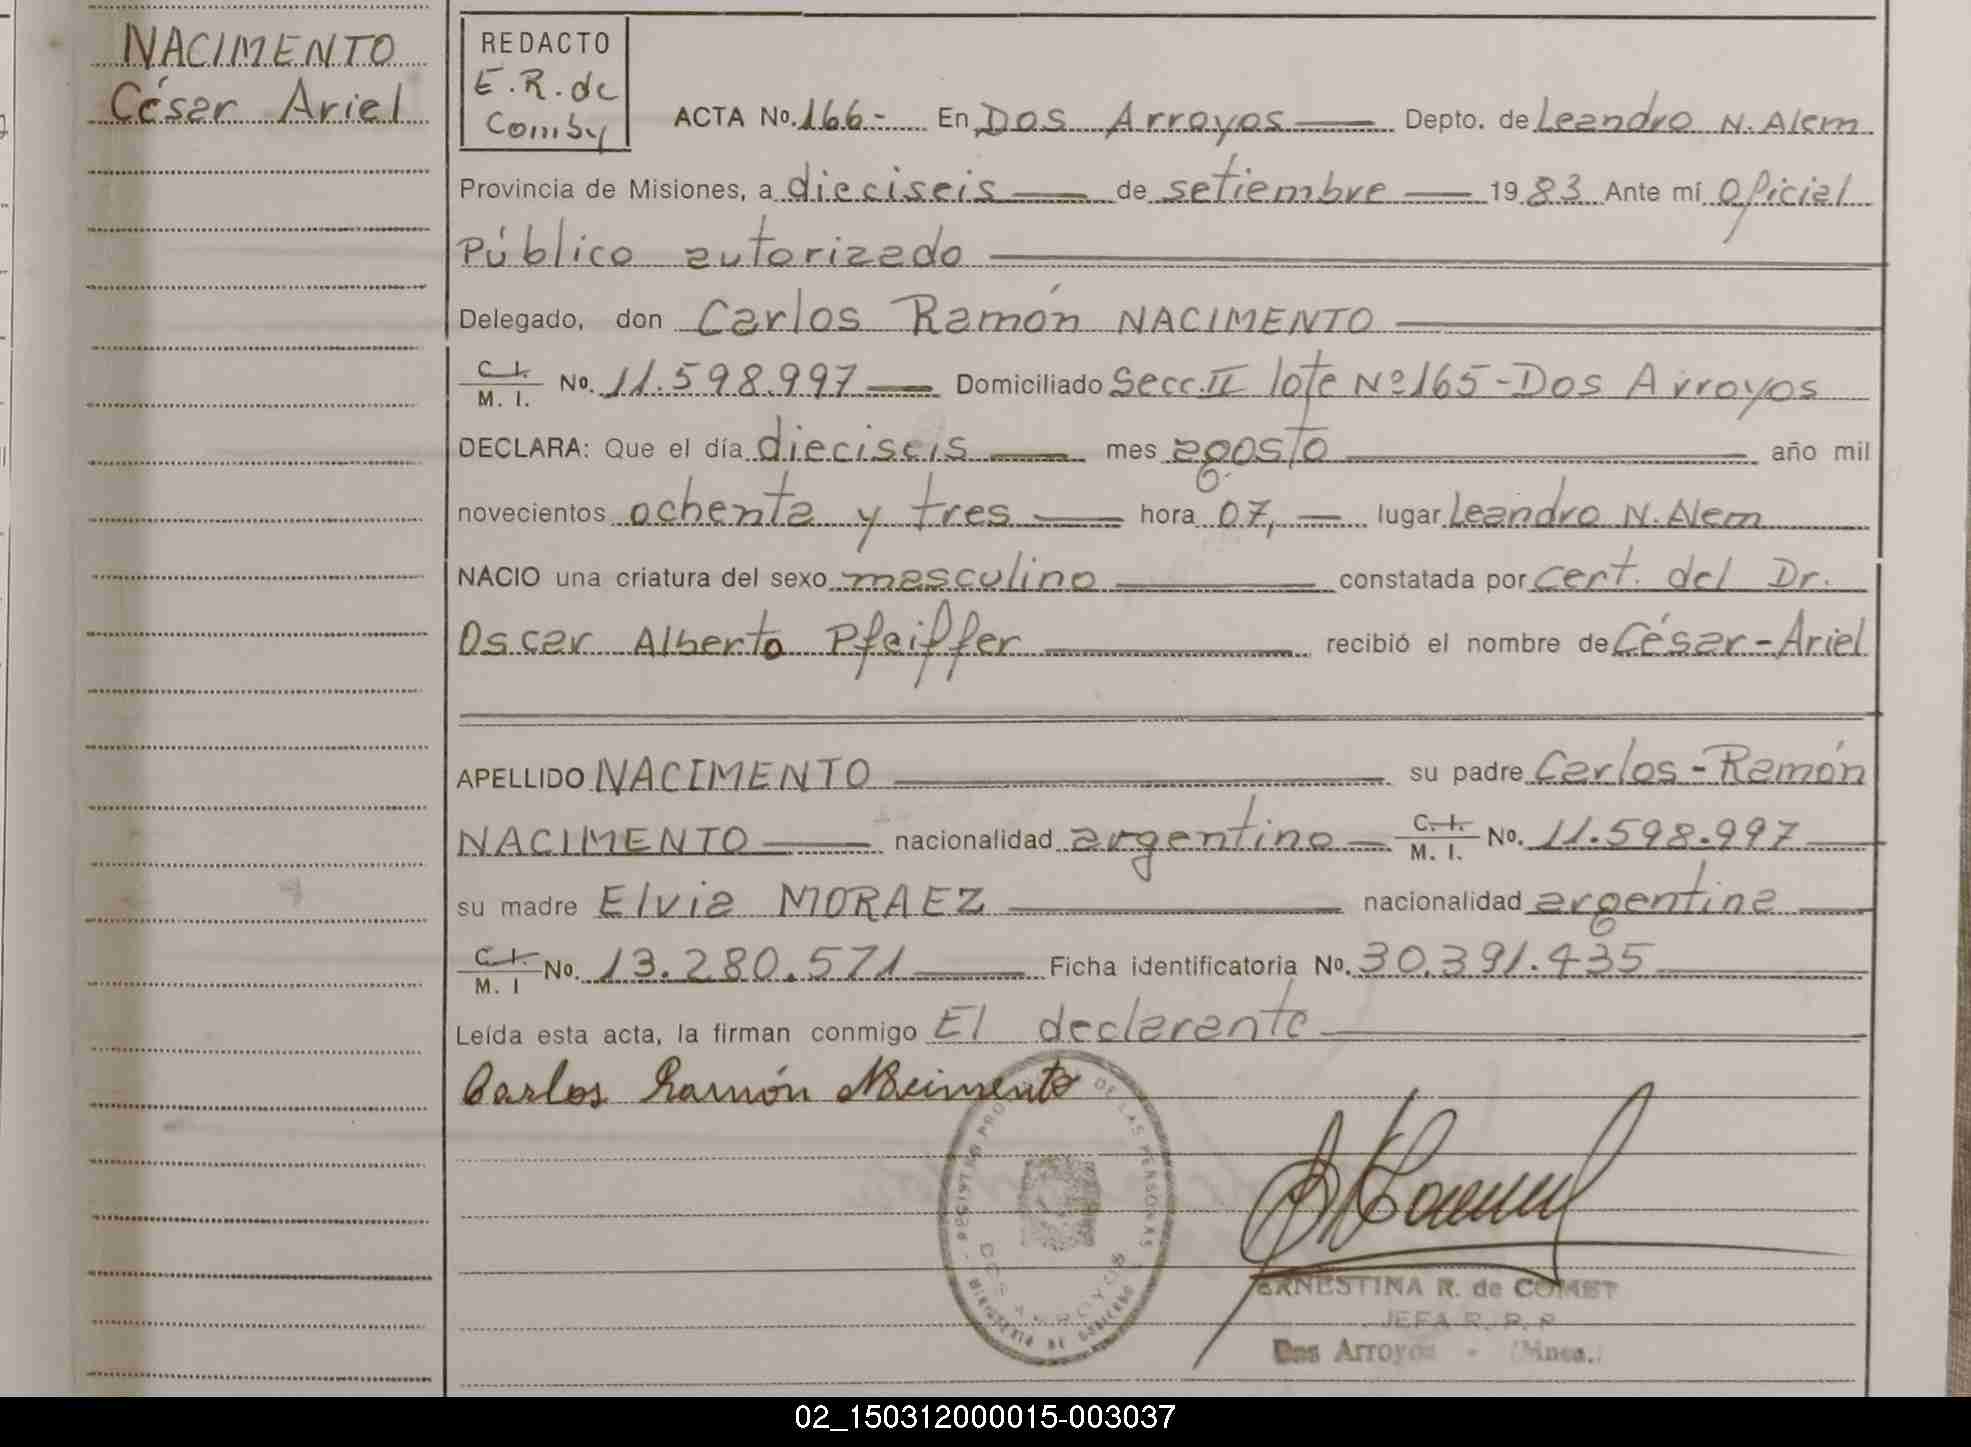 NACIMENTO
César Ariel
REDACTO
E.R. de
Comby
ACTA No. 166- En Dos Arroyos Depto. de Leandro N. Alem
Provincia de Misiones, a dieciseis de setiembre 1983 Ante mí Oficial
Público autorizado
Delegado, don Carlos Ramón NACIMENTO
C. I.
M. I. No. 11.598.997 Domiciliado Secc. II lote Nº 165 - Dos Arroyos
DECLARA: Que el día dieciseis mes agosto año mil
novecientos ochenta y tres hora 07, lugar Leandro N. Alem
NACIO una criatura del sexo masculino constatada por Cert. del Dr.
Oscar Alberto Pfeiffer recibió el nombre de César-Ariel
APELLIDO NACIMENTO su padre Carlos-Ramón
NACIMENTO nacionalidad argentino C. I. M. I. No. 11.598.997
su madre Elvia MORAEZ nacionalidad argentina
C. I.
M. I No. 13.280.571 Ficha identificatoria No. 30.391.435
Leída esta acta, la firman conmigo El declarante
Carlos Ramón Nacimento
REGISTRO PRO DE LAS PERSONAS
DOS ARROYOS
MINISTERIO DE GOBIERNO
ERNESTINA R. de
JEFA R. P. P
Dos Arroyos - (Mnes.)
02_150312000015-003037